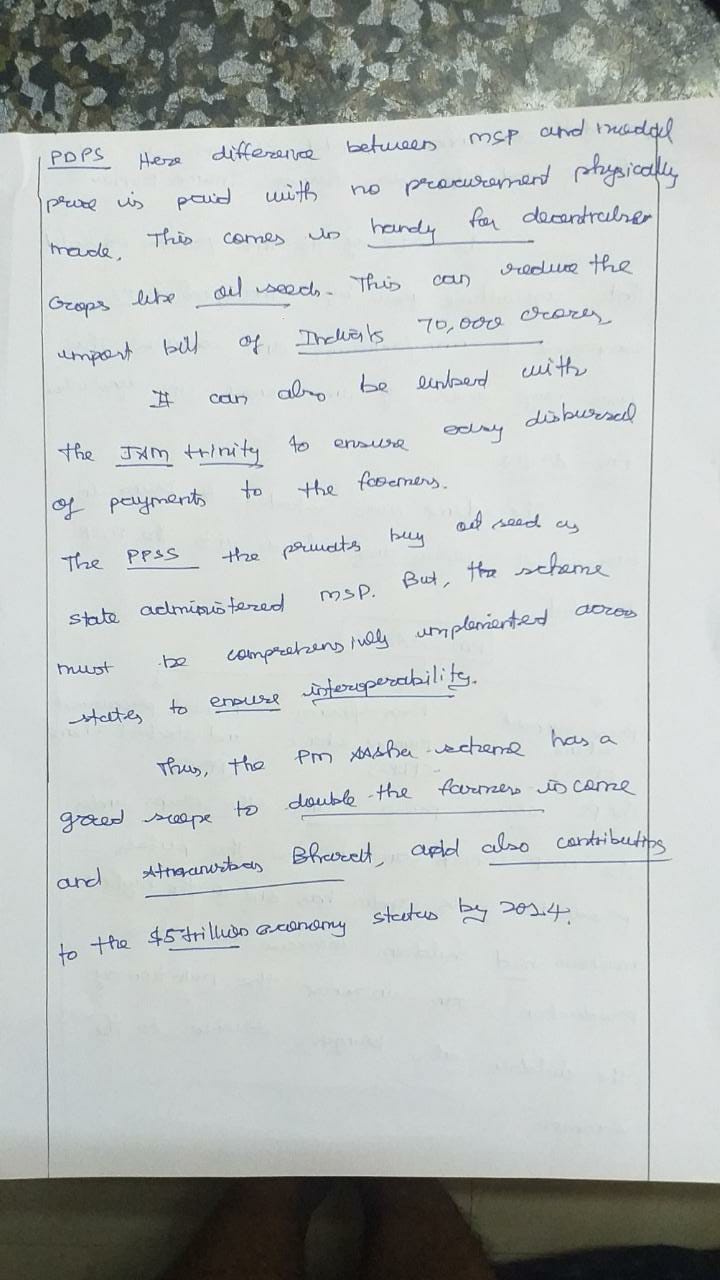 PDPS Here difference between MSP and modal
price is paid with no procurement physically
made. This comes in handy for decentraliser
crops like oil seeds. This can reduce the
import bill of India's 70,000 crores
It can also be linked with
the JAM trinity to ensure easy disbursal
of payments to the farmers.
The PPSS the privates buy oil seed as
state administered MSP. But, the scheme
must be comprehensively implemented across
states to ensure interoperability.
Thus, the PM AAsha scheme has a
good scope to double the farmers income
and Atmanirbar Bharat, and also contributing
to the $5 trillion economy status by 2024.